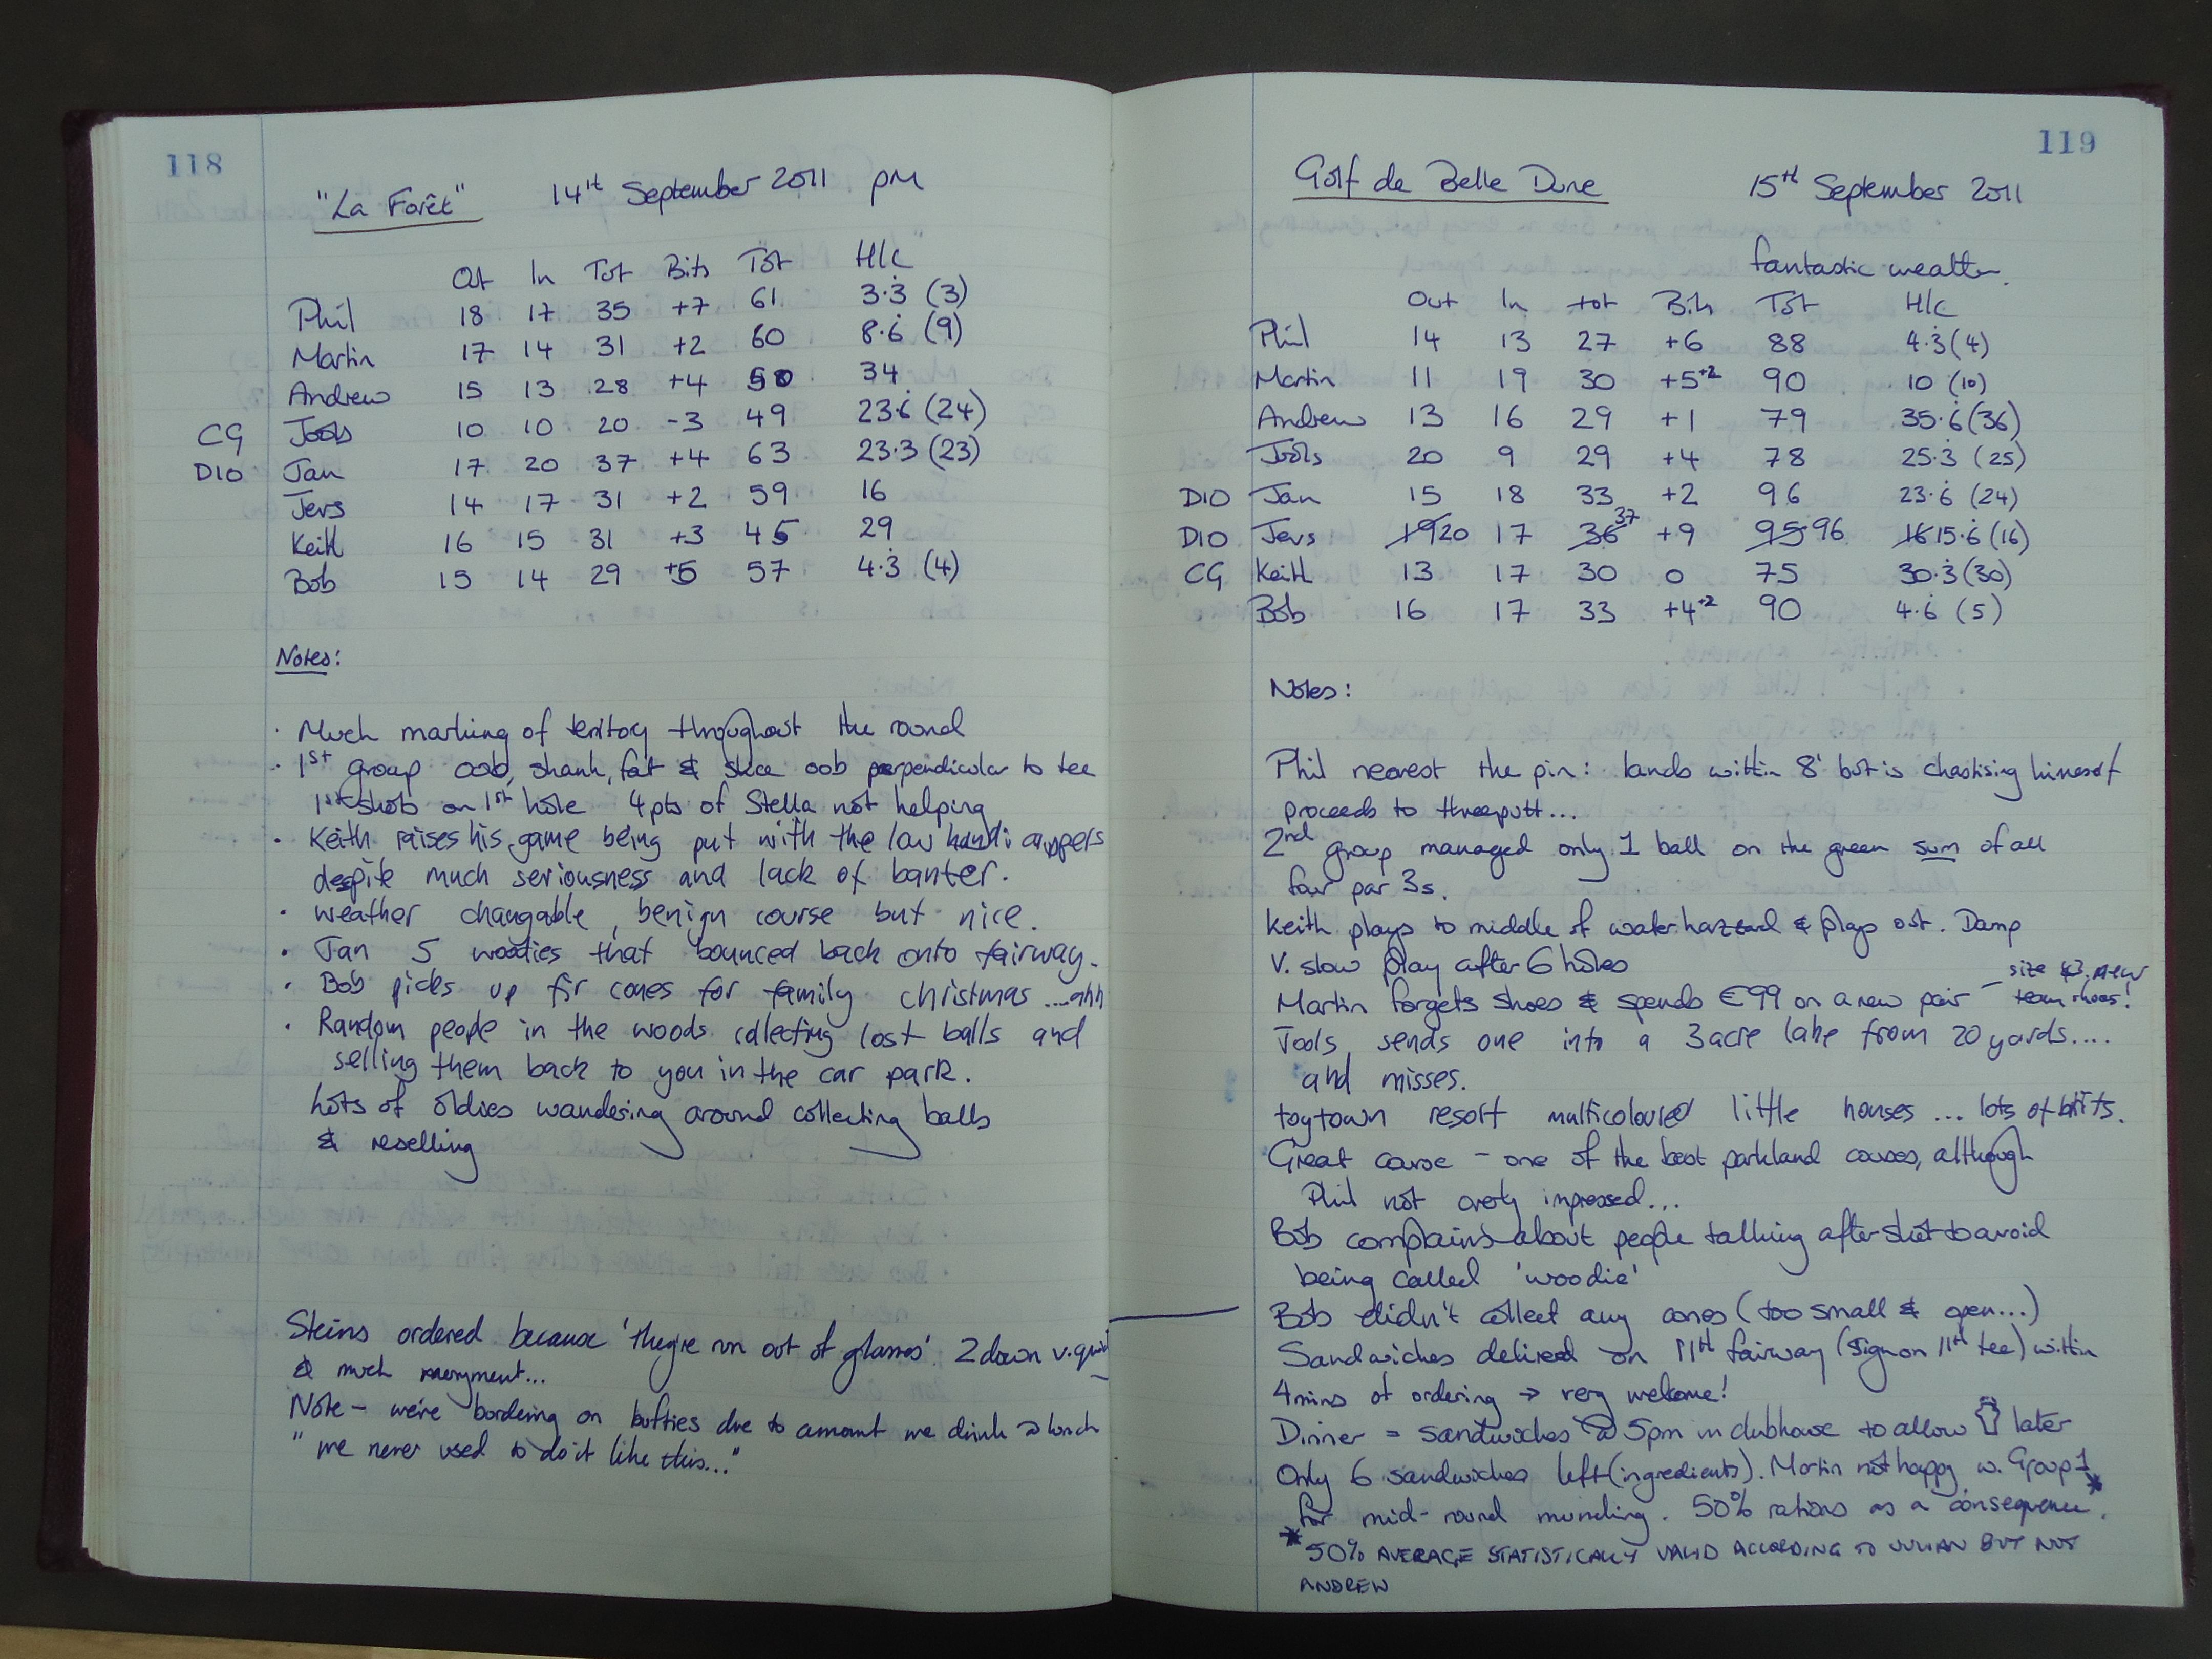 118
"La Forêt" 14th September 2011 pm
Out In Tot Bits Tot H/c
Phil 18 17 35 +7 61 3.3 (3)
Martin 17 14 31 +2 60 8.6 (9)
Andrew 15 13 28 +4 50 34
CG Jools 10 10 20 -3 49 23.6 (24)
DIO Jan 17 20 37 +4 63 23.3 (23)
Jevs 14 17 31 +2 59 16
Keith 16 15 31 +3 45 29
Bob 15 14 29 +5 57 4.3 (4)
Notes:
· Much marking of teritory throughout the round
· 1st group oob, shank, fat & slice oob perpendicular to tee
1st shots on 1st hole 4pts of Stella not helping
· Keith raises his game being put with the low handicappers
despite much seriousness and lack of banter.
· weather changable, benign course but nice.
· Jan 5 woodies that bounced back onto fairway.
· Bob picks up fir cones for family christmas ....ahh
· Random people in the woods collecting lost balls and
selling them back to you in the car park.
Lots of oldies wandering around collecting balls
& reselling
Steins ordered because 'they're run out of glasses'. 2 down v.
& much merryment...
Note - we're bordering on bufties due to amount we drink @ lunch
"we never used to do it like this..."
119
Golf de Belle Dune 15th September 2011
fantastic weather.
Out In tot Bits Tot H/c
Phil 14 13 27 +6 88 4.3 (4)
Martin 11 19 30 +5+2 90 10 (10)
Andrew 13 16 29 +1 79 35.6 (36)
Jools 20 9 29 +4 78 25.3 (25)
DIO Jan 15 18 33 +2 96 23.6 (24)
DIO Jevs 19 20 17 36 37 +9 95 96 16 15.6 (16)
CG Keith 13 17 30 0 75 30.3 (30)
Bob 16 17 33 +4+2 90 4.6 (5)
Notes:
Phil nearest the pin: lands within 8' but is chastising himself
proceeds to threeputt...
2nd group managed only 1 ball on the green sum of all
four par 3s.
Keith plays to middle of water hazard & plays out. Damp
V. slow play after 6 holes
Martin forgets shoes & spends €99 on a new pair - size 43, new
team shoes!
Jools sends one into a 3 acre lake from 20 yards....
and misses.
toytown resort multicoloured little houses ... lots of brits.
Great course - one of the best parkland courses, although
Phil not overly impressed...
Bob complains about people talking after shot to avoid
being called 'woodie'
Bob didn't collect any cones (too small & open...)
Sandwiches delivered on 11th fairway (sign on 11th tee) within
4mins of ordering → very welcome!
Dinner = sandwiches @ 5pm in clubhouse to allow later
Only 6 sandwiches left (ingredients). Martin not happy w. Group 1*
for mid-round munching. 50% rations as a consequence.
*50% AVERAGE STATISTICALLY VALID ACCORDING TO JULIAN BUT NOT
ANDREW